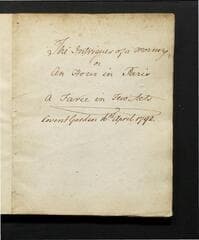 The Intrigues of a Morning
or
An Hour in Paris
A Farce in Two Acts
Covent Garden April 1792